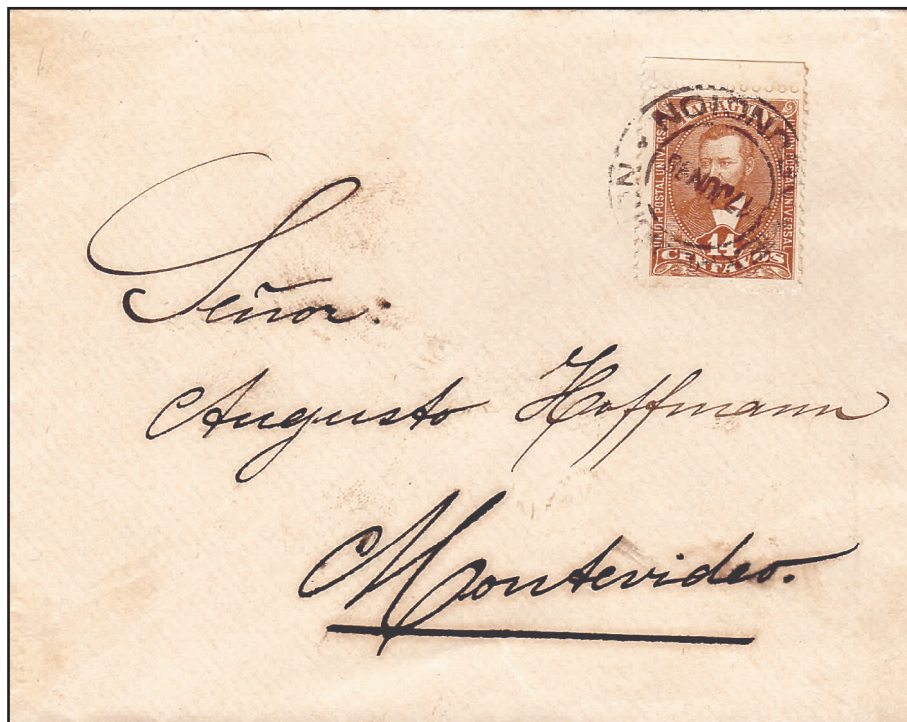 UNION POSTAL UNIVERSAL
UNION POSTAL UNIVERSAL
14
CENTAVOS
Señor:
Augusto Hoffmann
Montevideo.